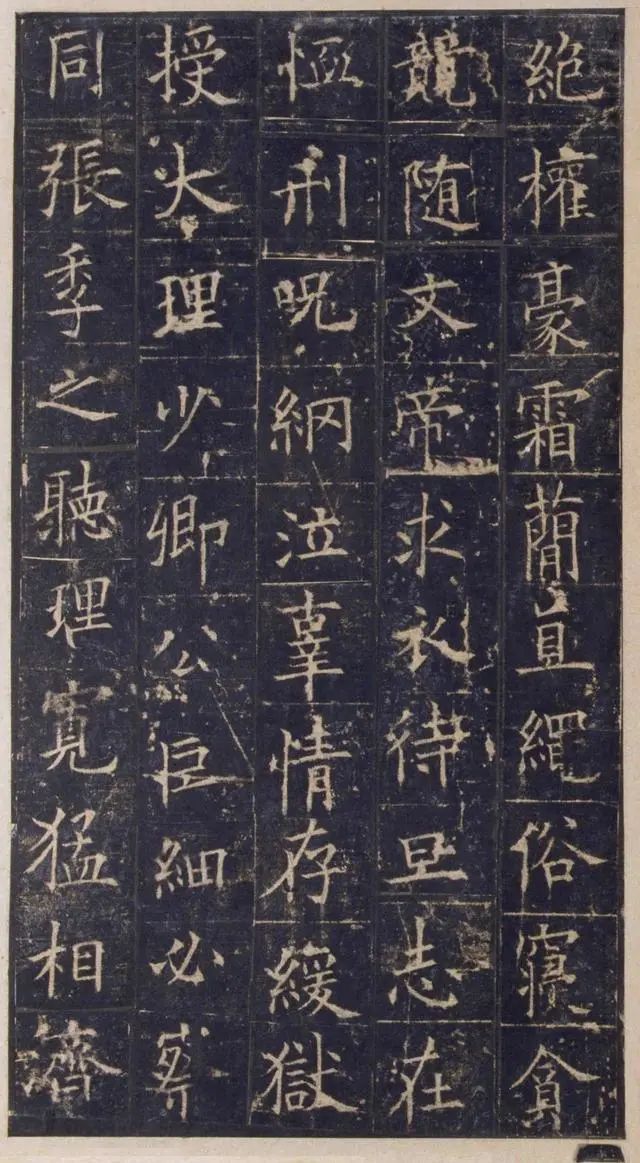 絶權豪霜蕳直繩俗寢貪
競随文帝求衣待旦志在
恤刑呪網泣辜情存緩獄
授大理少卿公巨細必察
同張季之聽理寛猛相濟